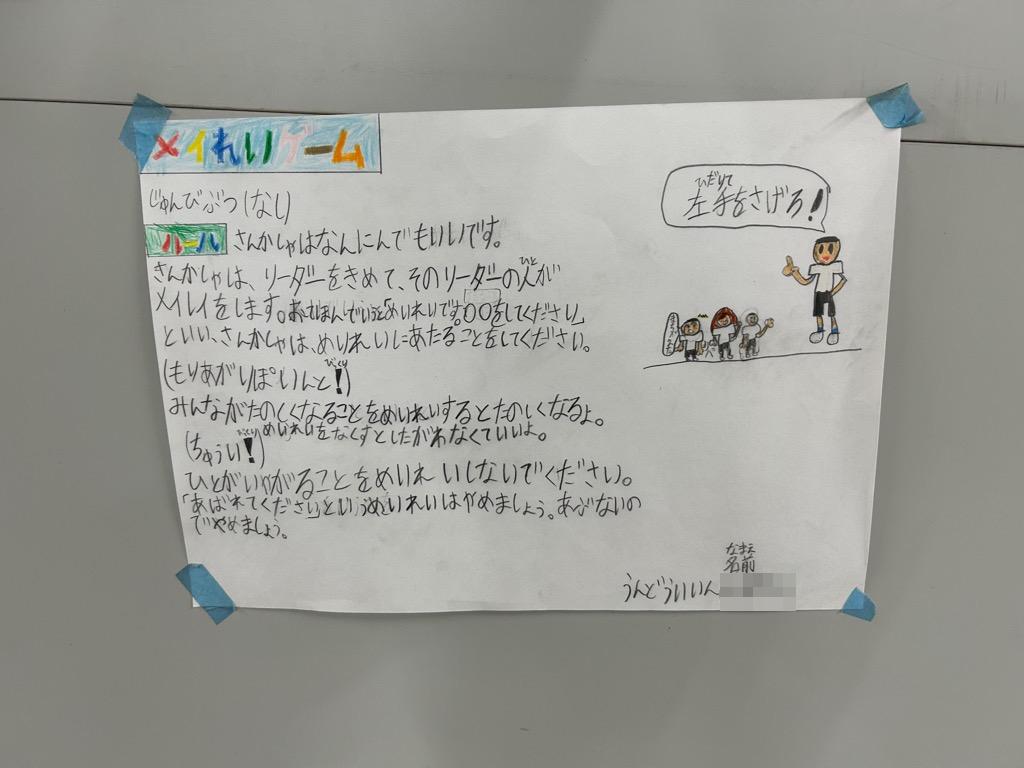 メイれいゲーム
じゅんびぶつ(なし)
ルール さんかしゃはなんにんでもいいです。
さんかしゃは、リーダーをきめて、そのリーダーの人が
ひと
メイレイをします。「めいれいです。〇〇をしてください」
といい、さんかしゃは、めいれいにあたることをしてください。
(もりあがりぽいんと!)
びっくり
みんながたのしくなることをめいれいするとたのしくなるよ。
めいれいをなくすとしたがわなくていいよ。
(ちゅうい!)
びっくり
ひとがいやがることをめいれいしないでください。
「あばれてください」というめいれいはやめましょう。あぶないの
でやめましょう。
ひだりて
左手をさげろ!
なまえ
名前
うんどういいん